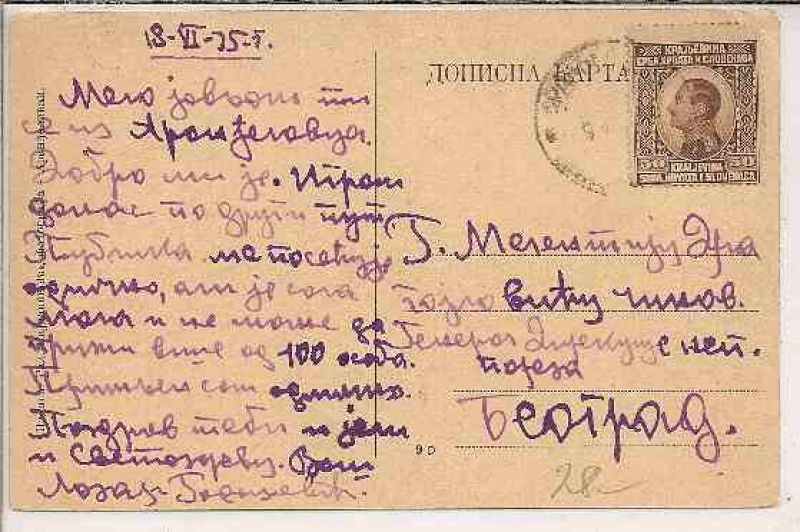 18-VI-25.г.
Мело јављам ти
се из Аранђеловца.
Добро ми је. Играм
данас по други пут
Публика ме посећује
одлично, али је сала
мала и не може да
прими више од 100 особа.
Примљен сам одлично.
Поздрав теби и јели
и Светозареву. Ваш
Лазар
ДОПИСНА КАРТА
КРАЉЕВИНА
СРБА, ХРВАТА И СЛОВЕНАЦА
50 KRALJEVINA 50
SRBA, HRVATA I SLOVENACA
Г. Мелентију
вишу чинов.
Генерал. Дирекције неп.
пореза
Београд.
90
28